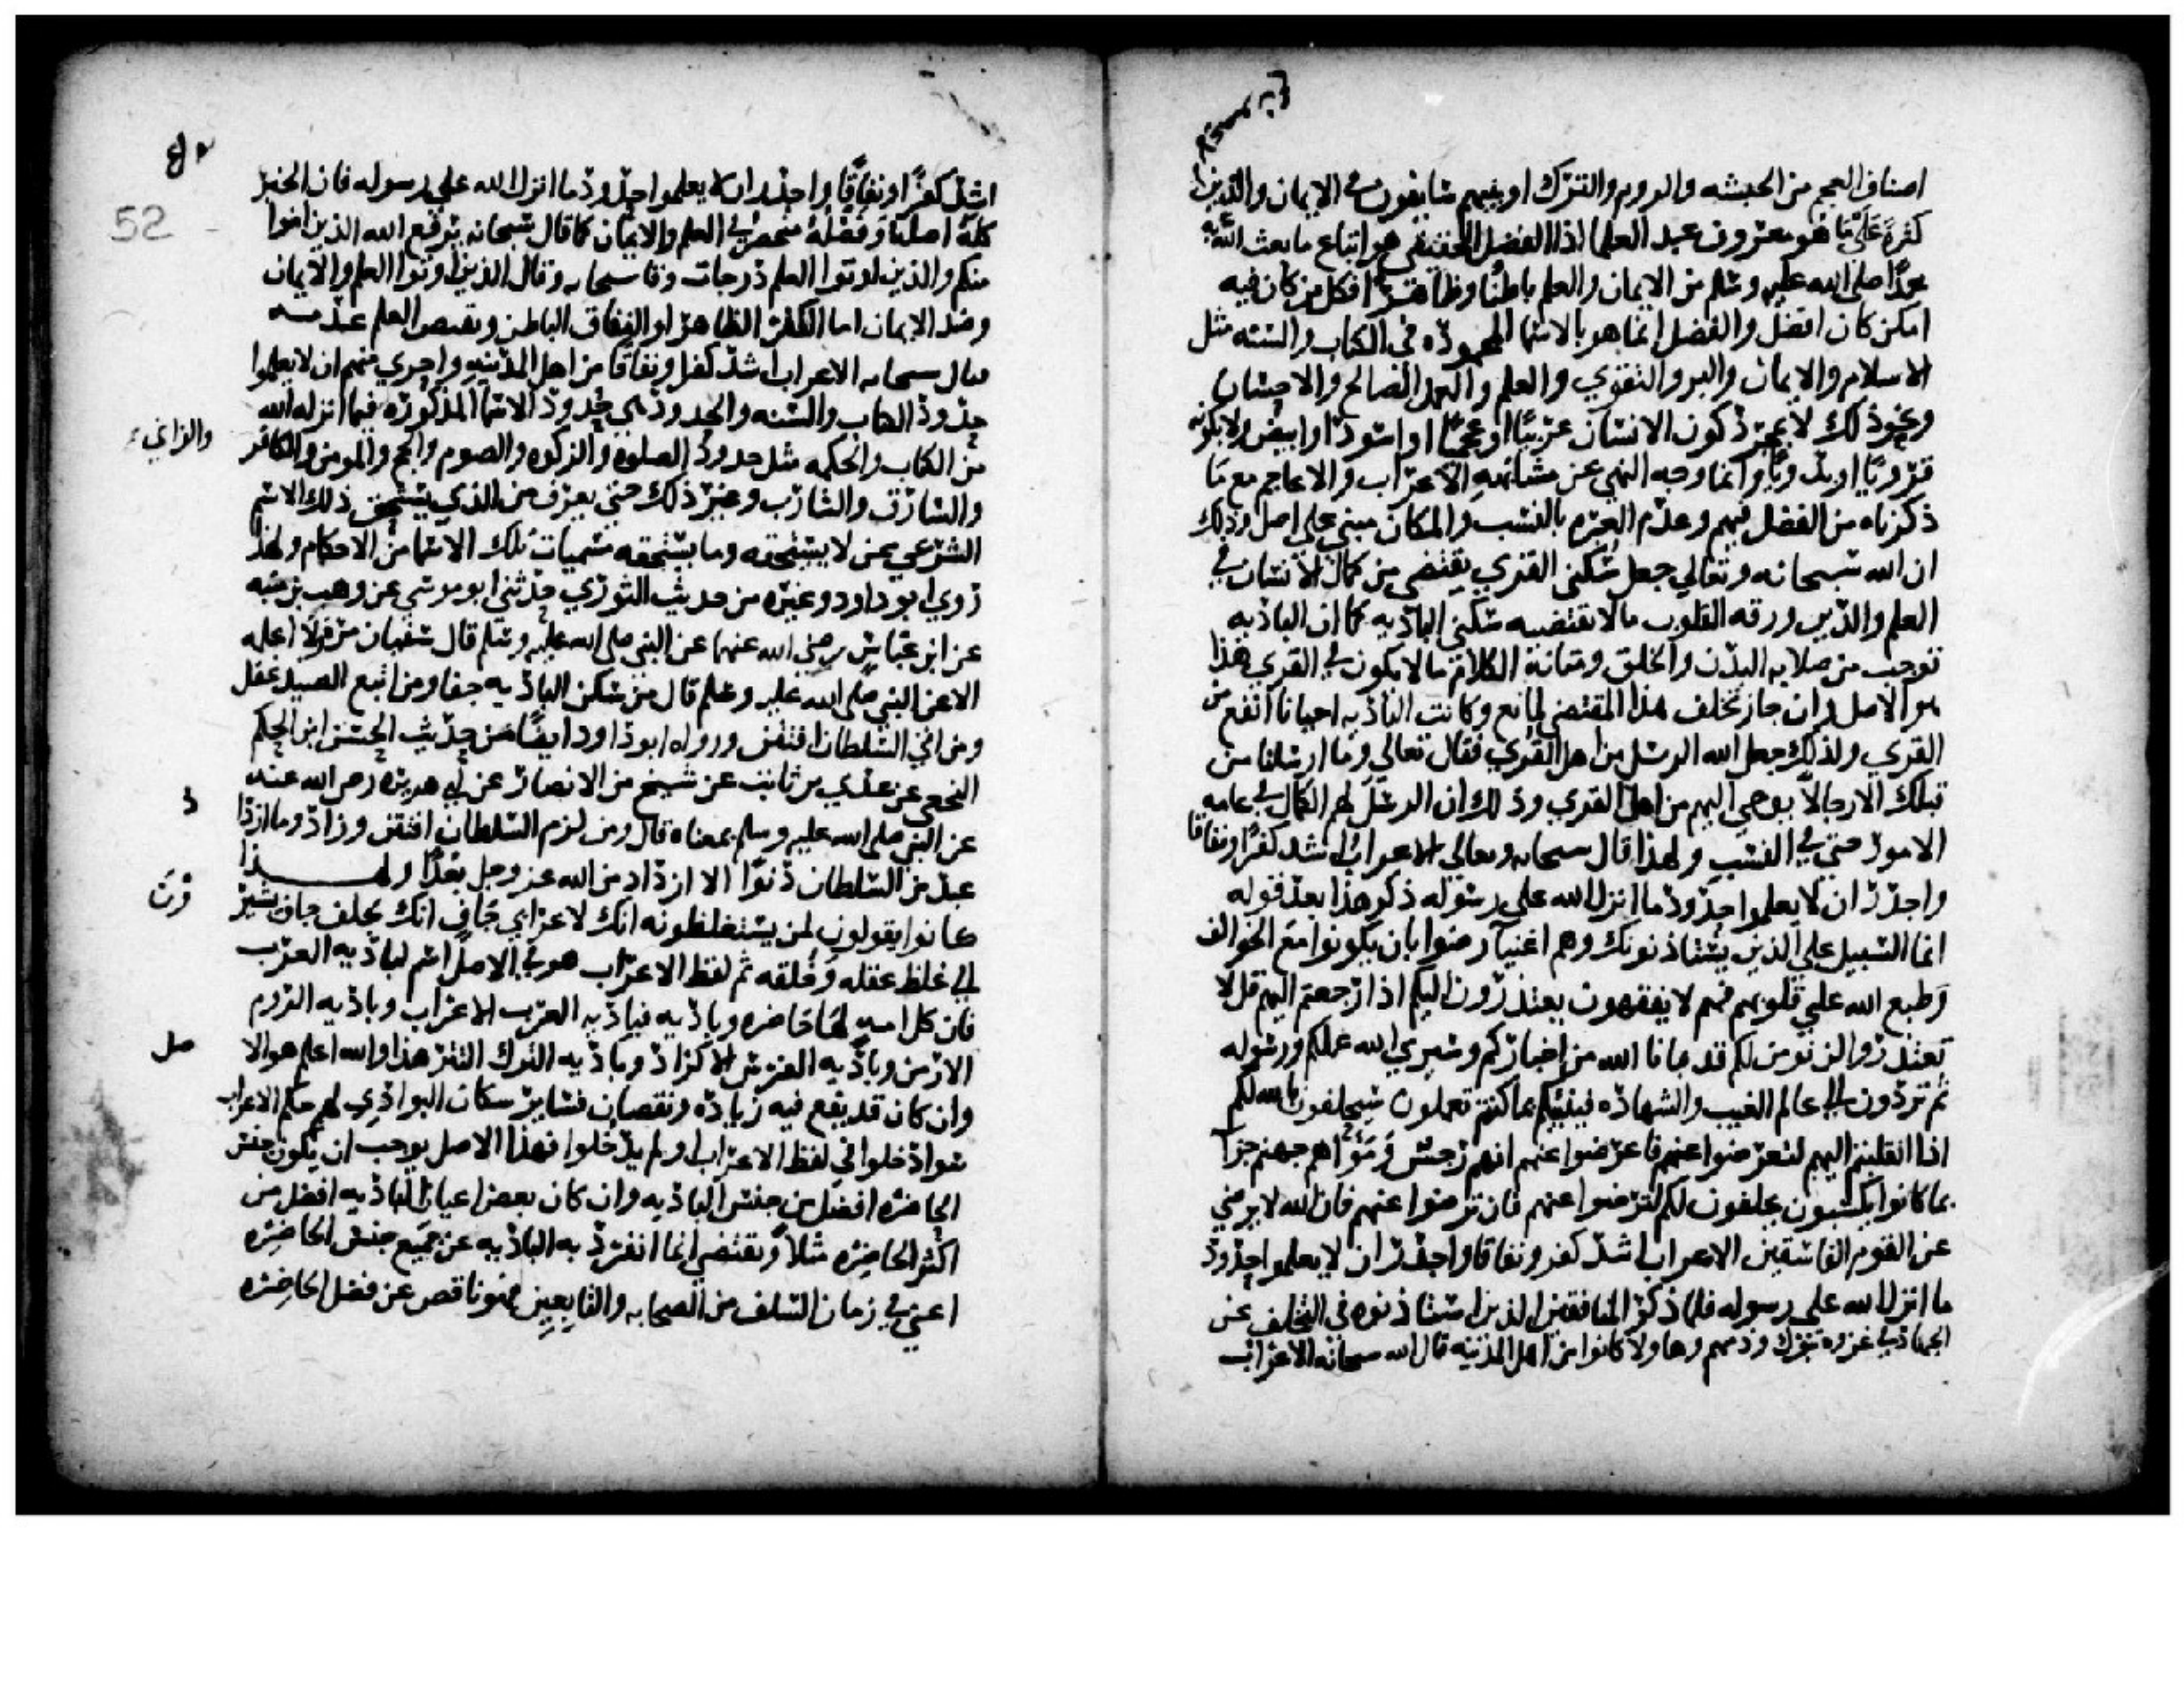 اصناف العجم من الحبشه والروم والترك او بينهم سابقون في الايمان والدين
كثرة على ما هو معروف عند العلما اذ الفضل الحقيقي هو اتباع ما بعث الله به
محمدا صلى الله عليه وسلم من الايمان والعلم باطنا وظاهرا فكل من كان فيه
امكن كان افضل والفضل انما هو بالاسما المحموده في الكتاب والسنه مثل
الاسلام والايمان والبر والتقوي والعلم والعمل الصالح والاحسان
ونحو ذلك لا بمجرد كون الانسان عربيا او عجميا او اسود او ابيض ولا بكونه
قرويا او بدويا وانما وجه النهي عن مشابهه الاعراب والاعاجم مع ما
ذكرناه من الفضل فيهم وعدم العبره بالنسب والمكان مبني على اصل وذلك
ان الله سبحانه وتعالي جعل سكني القري يقتضي من كمال الانسان في
العلم والدين ورقه القلوب ما لا يقتضيه سكني الباديه كما ان الباديه
توجب من صلابه البدن والخلق ومتانة الكلام ما لا يكون في القري هذا
هو الاصل وان جاز تخلف هذا المقتضي لمانع وكانت الباديه احيانا انفع من
القري ولذلك جعل الله الرسل من اهل القري فقال تعالى وما ارسلنا من
قبلك الا رجالا يوحي اليهم من اهل القري وذلك ان الرسل لهم الكمال في عامه
الامور حتي في النسب ولهذا قال سبحانه وتعالى الاعراب اشد كفرا ونفاقا
واجدر ان لا يعلموا حدود ما انزل الله على رسوله ذكر هذا بعد قوله
انما السبيل علي الذين يستاذنونك وهم اغنيآ رضوا بان يكونوا مع الخوالف
وطبع الله علي قلوبهم فهم لا يفقهون يعتذرون اليكم اذا رجعتم اليهم قل لا
تعتذروا لن نومن لكم قد نبانا الله من اخباركم وسيري الله عملكم ورسوله
ثم تردون الى عالم الغيب والشهاده فينبيكم بما كنتم تعملون سيحلفون بالله لكم
اذا انقلبتم اليهم لتعرضوا عنهم فاعرضوا عنهم انهم رجس وماواهم جهنم جزآ
بما كانوا يكسبون يحلفون لكم لترضوا عنهم فان ترضوا عنهم فان الله لا يرضي
عن القوم الفاسقين الاعراب اشد كفرا ونفاقا واجدر ان لا يعلموا حدود
ما انزل الله على رسوله فلما ذكر المنافقين الذين استاذنوه في التخلف عن
الجهاد في غزوه تبوك وذمهم وهاولا كانوا من اهل المدينه قال الله سبحانه الاعراب
52
اشد كفرا ونفاقا واجدر ان لا يعلموا حدود ما انزل الله علي رسوله فان الخير
كله اصله وفضله منحصر في العلم والايمان كما قال سبحانه يرفع الله الذين امنوا
منكم والذين اوتوا العلم درجات وقا سبحانه وقال الذين اوتوا العلم والايمان
وضد الايمان اما الكفر الظاهر او النفاق الباطن ونقيض العلم عدمه
فقال سبحانه الاعراب اشد كفرا ونفاقا من اهل المدينه واحري منهم ان لا يعلموا
حدود الكتاب والسنه والحدود هي حدود الاسما المذكوره فيما انزله الله
من الكتاب والحكمه مثل حدود الصلوه والزكوه والصوم والحج والمومن والكافر والزاني
والسارق والشارب وغير ذلك حتي يعرف من الذي يستحق ذلك الاسم
الشرعي ممن لا يستحقه وما يستحقه مسميات تلك الاسما من الاحكام ولهذا
روي ابو داود وغيره من حديث الثوري حدثني ابو موسي عن وهب بن منبه
عن ابن عباس رضي الله عنهما عن النبي صلى الله عليه وسلم قال سفيان مره ولا اعلمه
الا عن النبي صلى الله عليه وسلم قال من سكن الباديه جفا ومن اتبع الصيد غفل
ومن اتي السلطان افتتن ورواه ابو داود ايضا من حديث الحسن ابن الحكم
النخعي عن عدي بن ثابت عن شيخ من الانصار عن ابي هريره رضي الله عنه
عن النبي صلى الله عليه وسلم بمعناه قال ومن لزم السلطان افتتن وزاد وما ازداد
عبد من السلطان دنوا الا ازداد من الله عز وجل بعدا ولهذا
كانوا يقولون لمن يستغلظونه انك لاعرابي جاف انك لجلف جاف يشيرون
الى غلظ عقله وخلقه ثم لفظ الاعراب هو في الاصل اسم لباديه العرب
فان كل امه لها حاضره وباديه فباديه العرب الاعراب وباديه الروم
الارمن وباديه الفرس الاكراد وباديه الترك التتر هذا والله اعلم هو الاصل
وان كان قد يقع فيه زياده ونقصان فسائر سكان البوادي لهم حكم الاعراب
سوا دخلوا في لفظ الاعراب او لم يدخلوا فهذا الاصل يوجب ان يكون جنس
الحاضره افضل من جنس الباديه وان كان بعض اعيان الباديه افضل من
اكثر الحاضره مثلا ويقتضي انما انفرد به الباديه عن جميع جنس الحاضره
اعني في زمان السلف من الصحابه والتابعين فهو ناقص عن فضل الحاضره